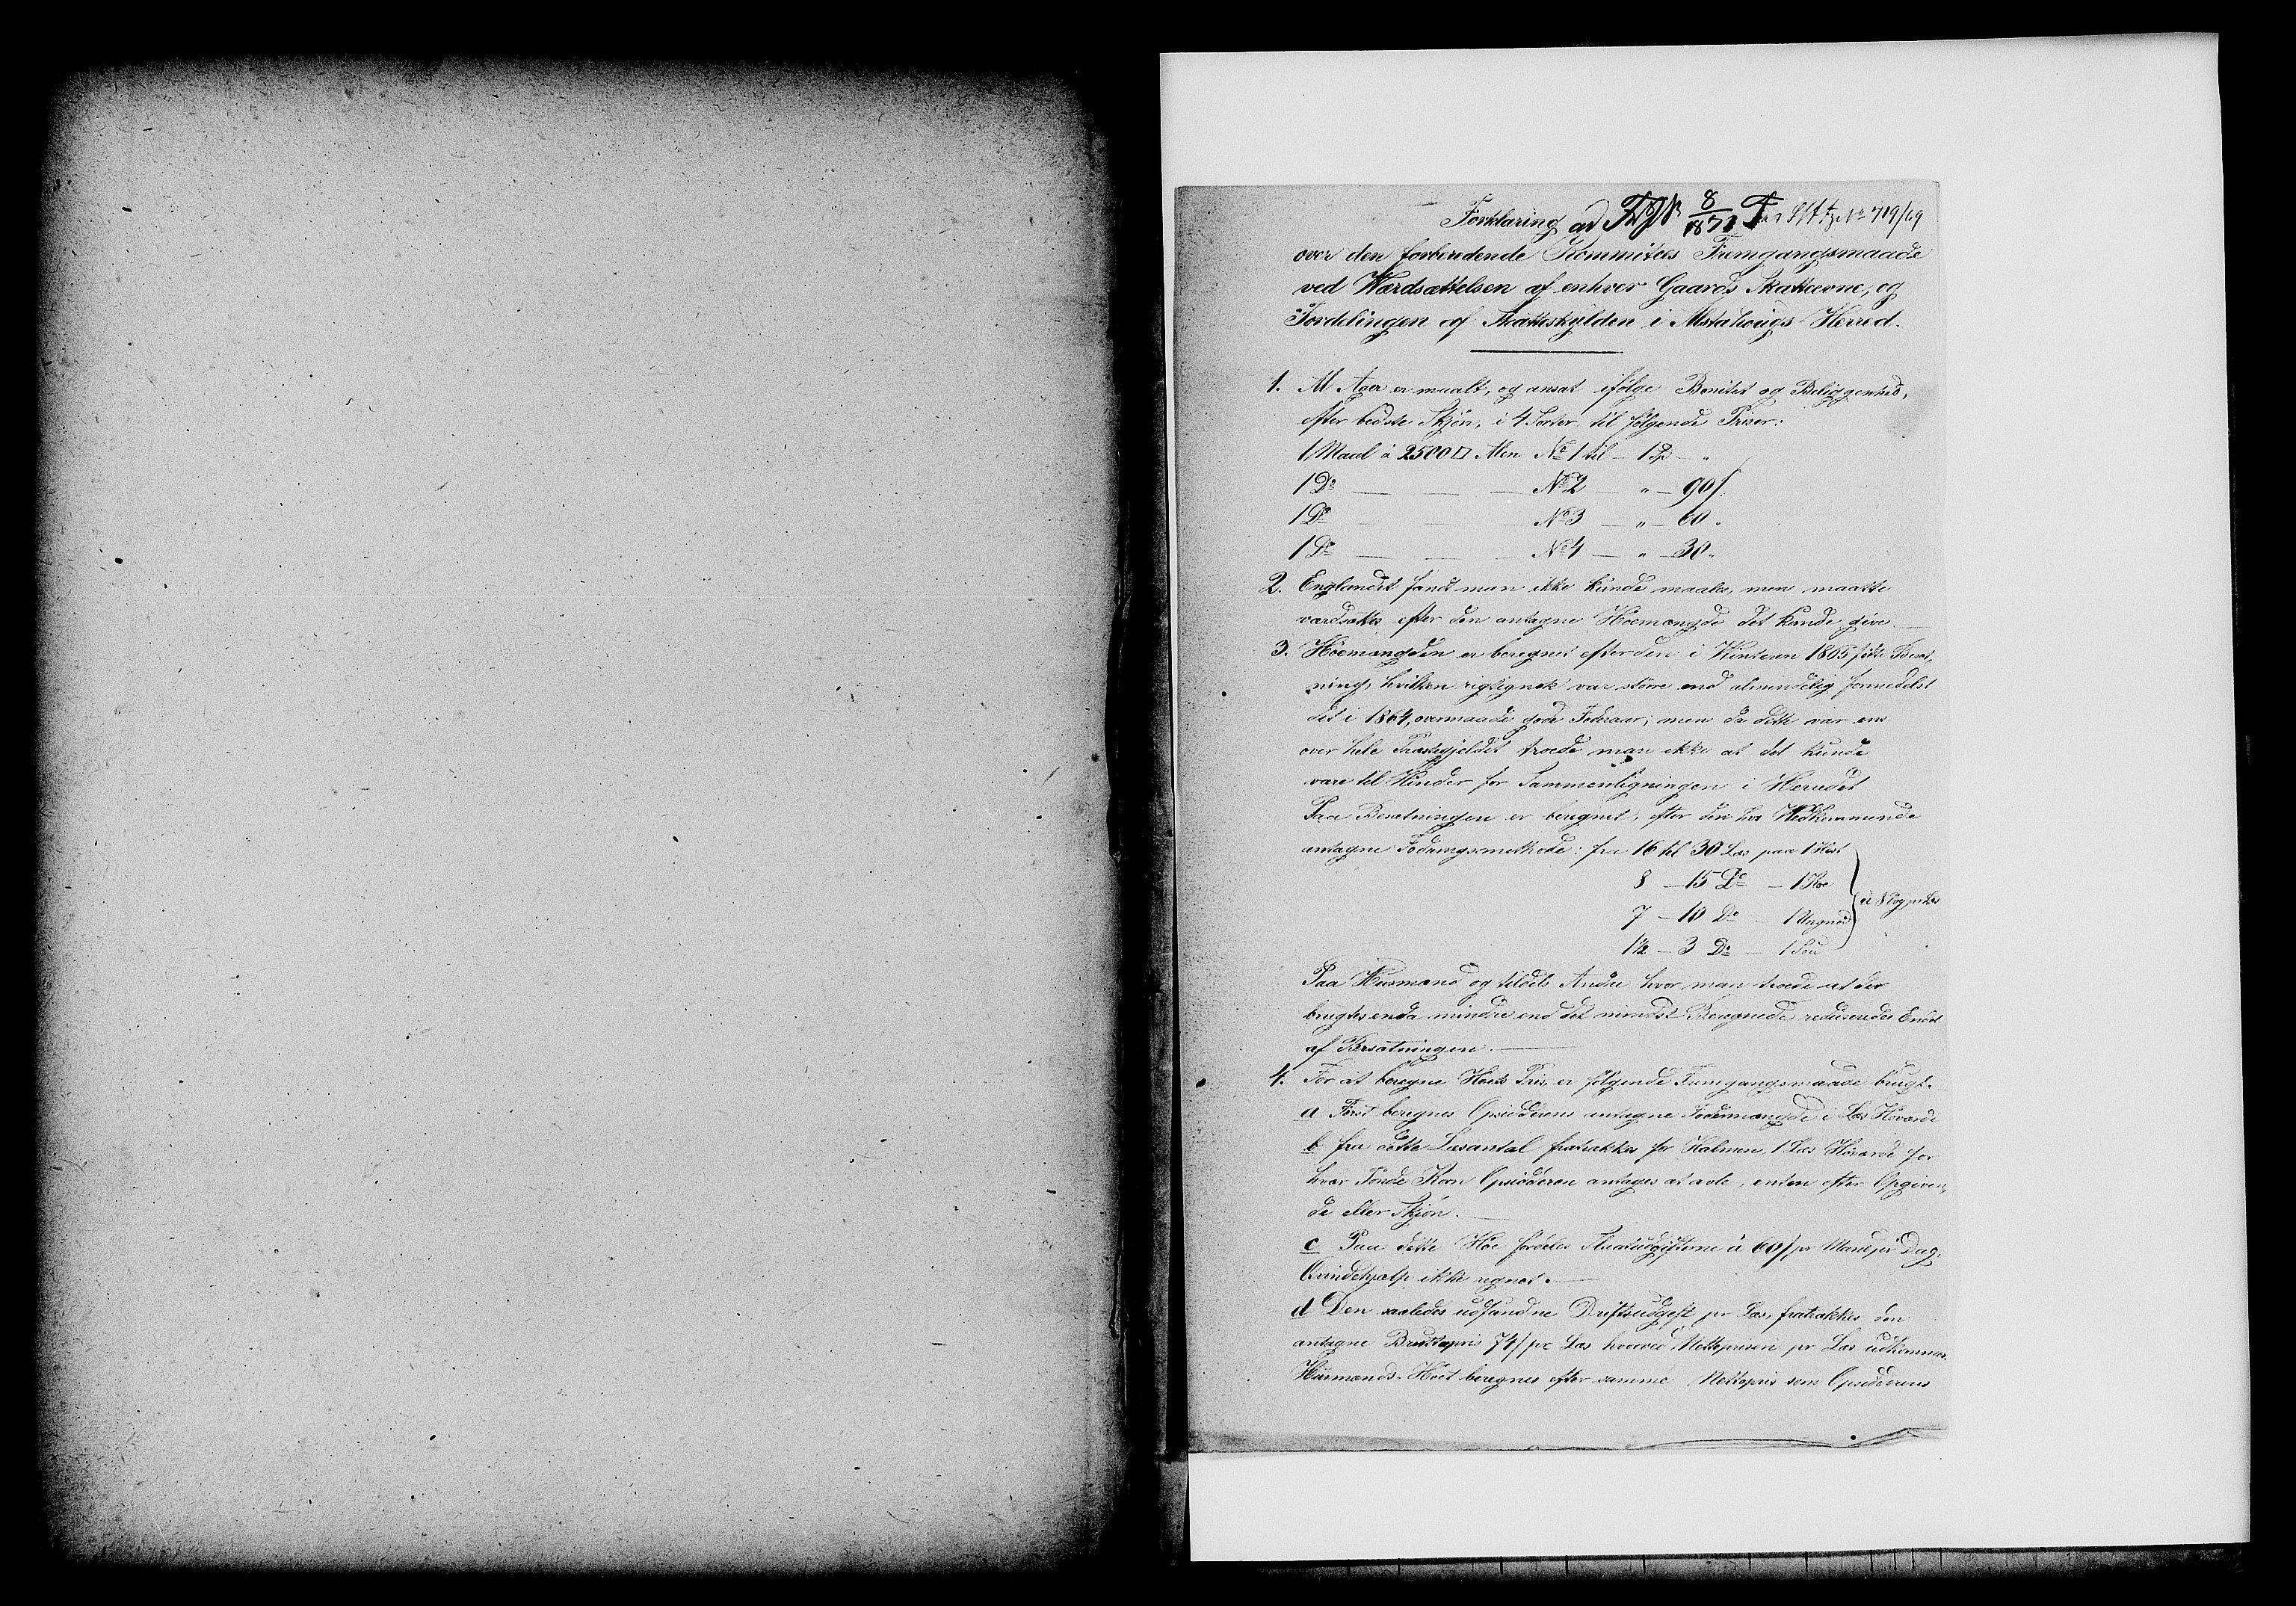 Forklaring ad No 719/69
8
1871
over den forberedende Kommitees Fremgangsmaade
ved Værdsættelsen af enhver Gaards Skatteevne, og
Fordelingen af Skatteskylden i Alstahougs Herred.
1. Al Ager er maalt, og ansat ifølge Bonitet og Beliggenhed,
efter bedste Skjøn, i 4 Sorter til følgende Priser:
1 Maal à 2500 □ Alen No 1 til – 1 Sp – "
1 Do — — — No 2 — " – 90 ſ.
1 Do — — — No 3 — " – 60 "
1 Do — — — No 4 — " – 30 "
2. Englandet fandt man ikke kunde maales, men maatte
værdsættes efter den antagne Høemængde det kunde give. —
3. Høemængden er beregnet efter den i Vinteren 1865 fødte Besæt,
ning, hvilken rigtignok var større end almindelig formedelst
det i 1864, overmaade gode Foderaar; men da dette var ens
over hele Præstegjeldet troede man ikke at det kunde
være til Hinder for Sammenligningen i Herredet
Paa Besætningen er beregnet, efter den hos Vedkommende
antagne Fodringsmethode: fra 16 til 30 Læs paa 1 Hest
8 – 15 Do – 1 Koe
7 – 10 Do – 1 Ungnød
1½ – 3 Do – 1 Sou
Paa Husmænd og tildels Andre hvor man troede at der
brugtes enda mindre end det mindst Beregnede reduseredes Endel
af Besætningen. —
4. For at beregne Høets Pris er følgende Fremgangsmaade brugt.
a Først beregnes Opsidderens antagne Fodermængde i Læs Høværdi
b fra dette Læsantal fratrækkes for Halmen 1 Læs Høværdi for
hver Tønde Korn Opsidderen antages at avle, enten efter Opgiven,
de eller Skjøn. —
c Paa dette Høe fordeles Slaatudgifterne à 60 ſ pr Mand pr Dag.
Qvindehjælp ikke regnet. —
d Den saaledes udfundne Driftsudgift pr Læs, fratrækkes den
antagne Bruttopris 74 ſ pr Læs hvorved Nettoprisen pr Læs udkommer.
Husmænds-Høet beregnes efter samme Nettopris som Opsidderens